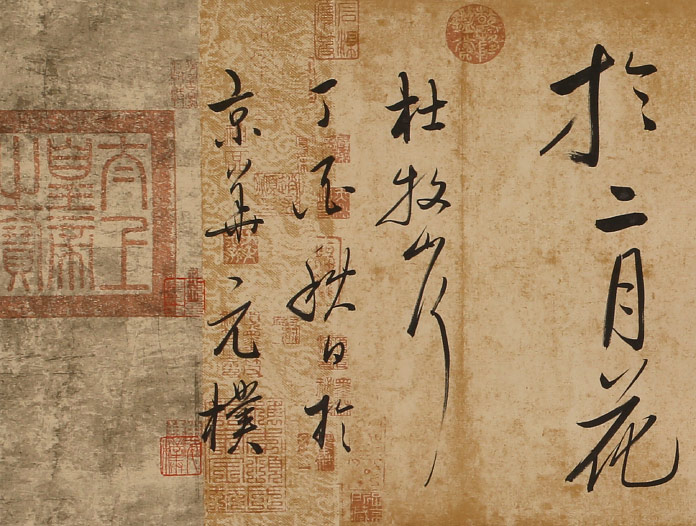 於二月花
杜牧山行
丁酉秋日於
京華元樸
太上
皇帝
之寶